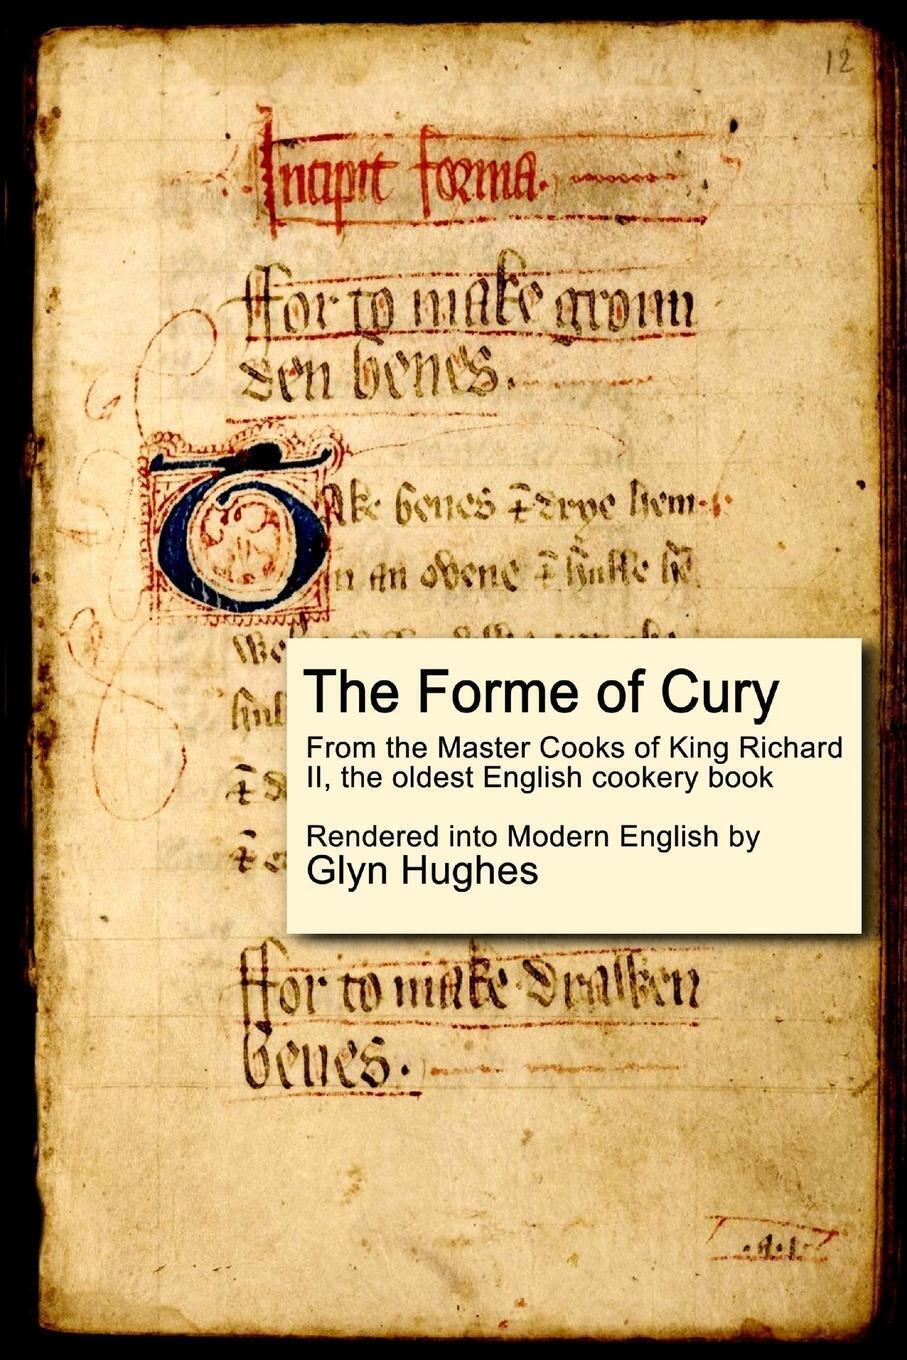 12
Incipit forma.
ffor to make groun
den benes.
Take benes ⁊ drye hem
in an ovene ⁊ hulle hē
We
hul
⁊ d
⁊ e
The Forme of Cury
From the Master Cooks of King Richard
II, the oldest English cookery book
Rendered into Modern English by
Glyn Hughes
ffor to make drawen
benes.